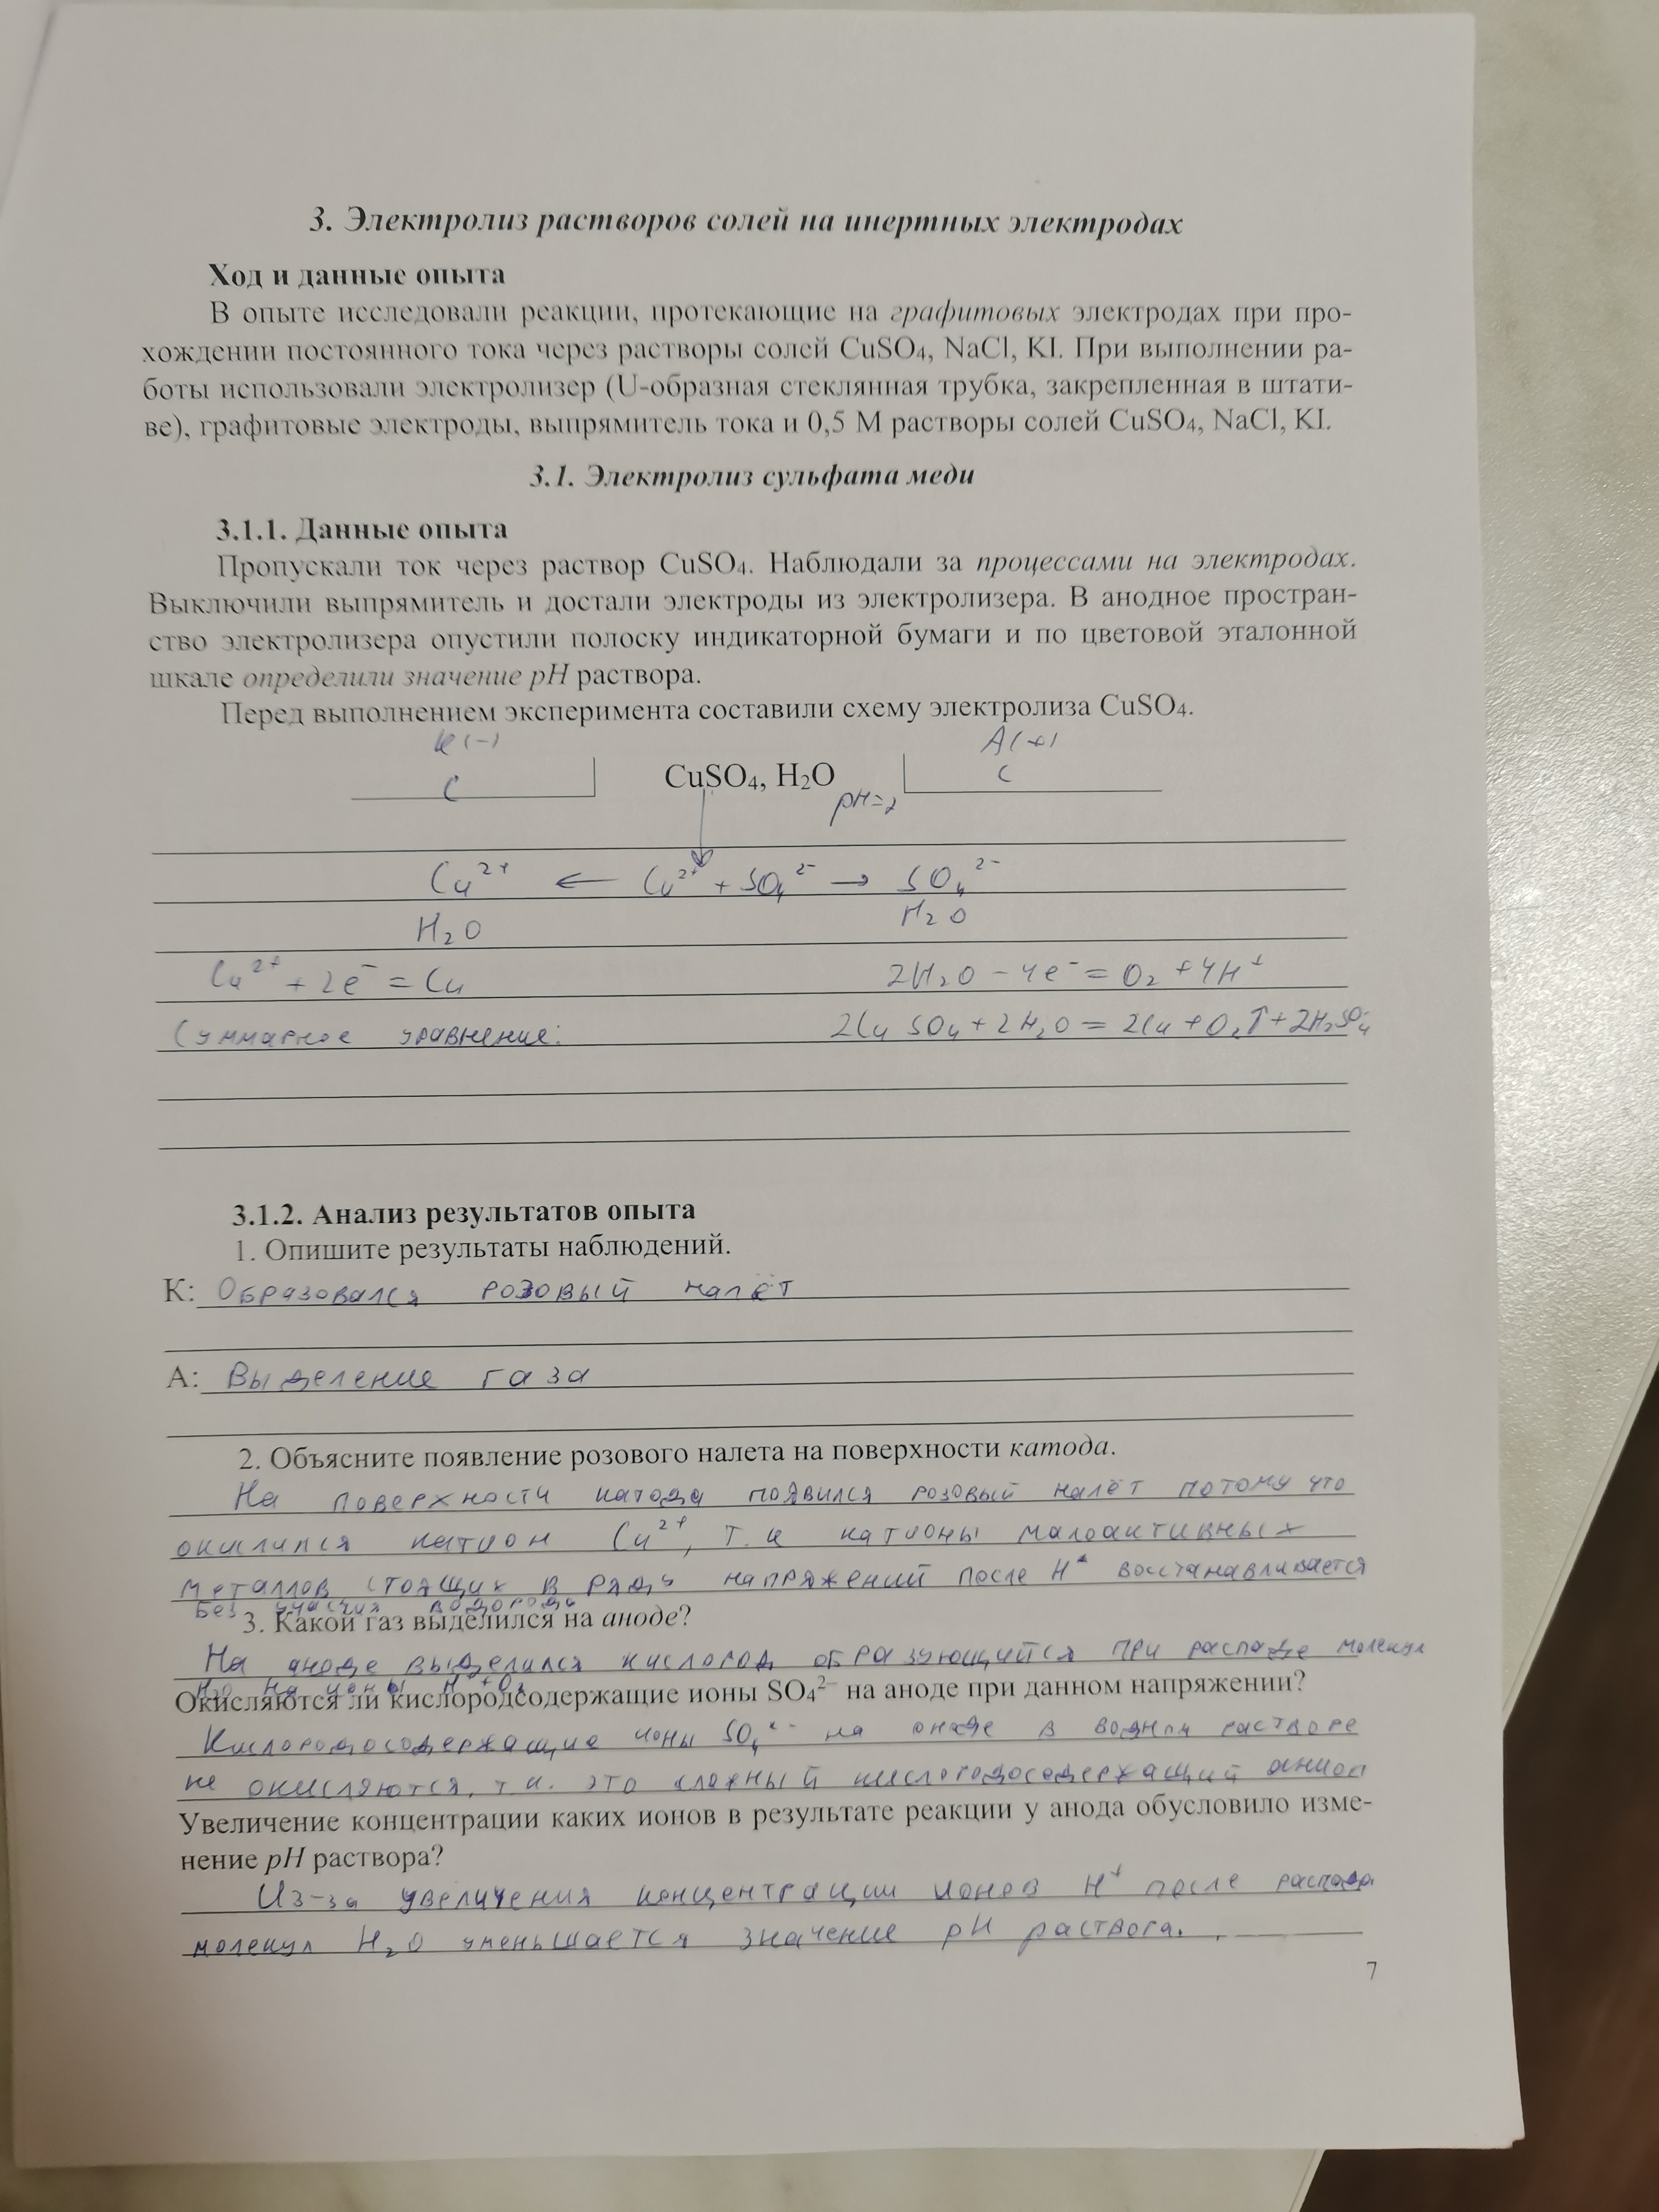 3. Электролиз растворов солей на инертных электродах
Ход и данные опыта
В опыте исследовали реакции, протекающие на графитовых электродах при про-
хождении постоянного тока через растворы солей CuSO₄, NaCl, KI. При выполнении ра-
боты использовали электролизер (U-образная стеклянная трубка, закрепленная в штати-
ве), графитовые электроды, выпрямитель тока и 0,5 М растворы солей CuSO₄, NaCl, KI.
3.1. Электролиз сульфата меди
3.1.1. Данные опыта
Пропускали ток через раствор CuSO₄. Наблюдали за процессами на электродах.
Выключили выпрямитель и достали электроды из электролизера. В анодное простран-
ство электролизера опустили полоску индикаторной бумаги и по цветовой эталонной
шкале определили значение pH раствора.
Перед выполнением эксперимента составили схему электролиза CuSO₄.
К(-) А(+)
C CuSO₄, H₂O C
pH=2
Cu²⁺ ← Cu²⁺ + SO₄²⁻ → SO₄²⁻
H₂O H₂O
Cu²⁺ + 2e⁻ = Cu 2H₂O - 4e⁻ = O₂ + 4H⁺
Суммарное уравнение: 2CuSO₄ + 2H₂O = 2Cu + O₂↑ + 2H₂SO₄
3.1.2. Анализ результатов опыта
1. Опишите результаты наблюдений.
К: Образовался розовый налёт
А: Выделение газа
2. Объясните появление розового налета на поверхности катода.
На поверхности катода появился розовый налёт потому что
окислился катион Cu²⁺, т.к катионы малоактивных
металлов стоящих в ряду напряжений после H⁺ восстанавливается
без участия водорода
3. Какой газ выделился на аноде?
На аноде выделился кислород образующийся при распаде молекул
H₂O на ионы H⁺ + O₂
Окисляются ли кислородсодержащие ионы SO₄²⁻ на аноде при данном напряжении?
Кислородосодержащие ионы SO₄²⁻ на аноде в водном растворе
не окисляются, т.к. это сложный кислородосодержащий анион
Увеличение концентрации каких ионов в результате реакции у анода обусловило изме-
нение pH раствора?
Из-за увеличения концентрации ионов H⁺ после распада
молекул H₂O уменьшается значение pH раствора.
7